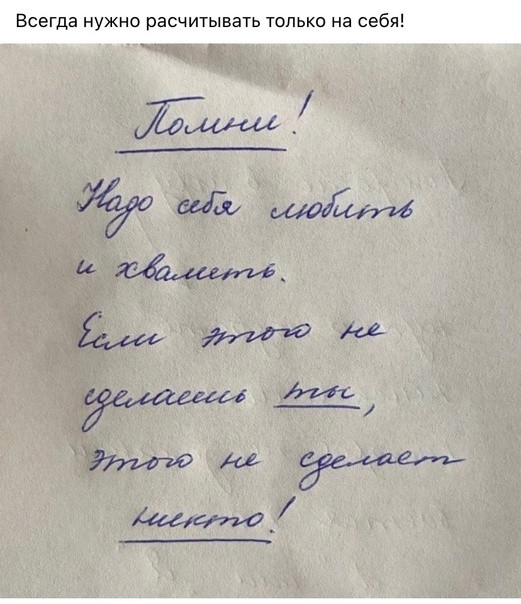 Всегда нужно расчитывать только на себя!
Помни!
Надо себя любить
и хвалить.
Если этого не
сделаешь ты,
этого не сделает
никто!